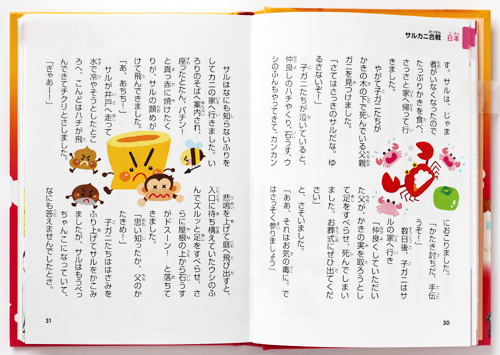 サルカニ合戦
日本
す。サルは、じゃま
者がいなくなったので
たっぷりかきを食べ、
さっさと家へ帰って行
きました。
やがて子ガニたちが
かきの木の下で死んでいる父親
ガニを見つけました。
「さてはさっきのサルだな。ゆ
るさないぞ！」
子ガニたちが泣いていると、
仲良しのハチやくり、石うす、ウ
シのふんもやってきて、カンカン
におこりました。
「かたき討ちだ、手伝
うぞ！」
数日後、子ガニはサ
ルの家へ行き
「仲良くしていただい
た父が かきの実を取ろうとし
て足をすべらせ、死んでしまい
ました。お葬式にぜひ出てくだ
さい」
と、さそいました。
「ああ、それはお気の毒に。で
はさっそく参りましょう」
30
サルはなにも知らないふりを
してカニの家へ行きました。い
ろりのそばへ案内され、
座ったとたん、バチン！
と真っ赤に焼けたく
りが、サルの顔めが
けて飛んできました。
「あ、あちち！」
サルが井戸へ走って
水で冷やそうとしたとこ
ろへ、こんどはハチが飛
んできてチクリとさしました。
「ぎゃあー！」
悲鳴を上げて庭へ飛び出すと、
入口に待ち構えていたウシのふ
んでズルッと足をすべらせ、さ
らに屋根の上から石うす
がドスーン！ と落ちて
きました。
「思い知ったか、父のか
たきめ！」
子ガニたちははさみを
ふり上げてサルをかこみ
ましたが、サルはもうぺっ
ちゃんこになっていて、
なにも答えませんでしたとさ。
31